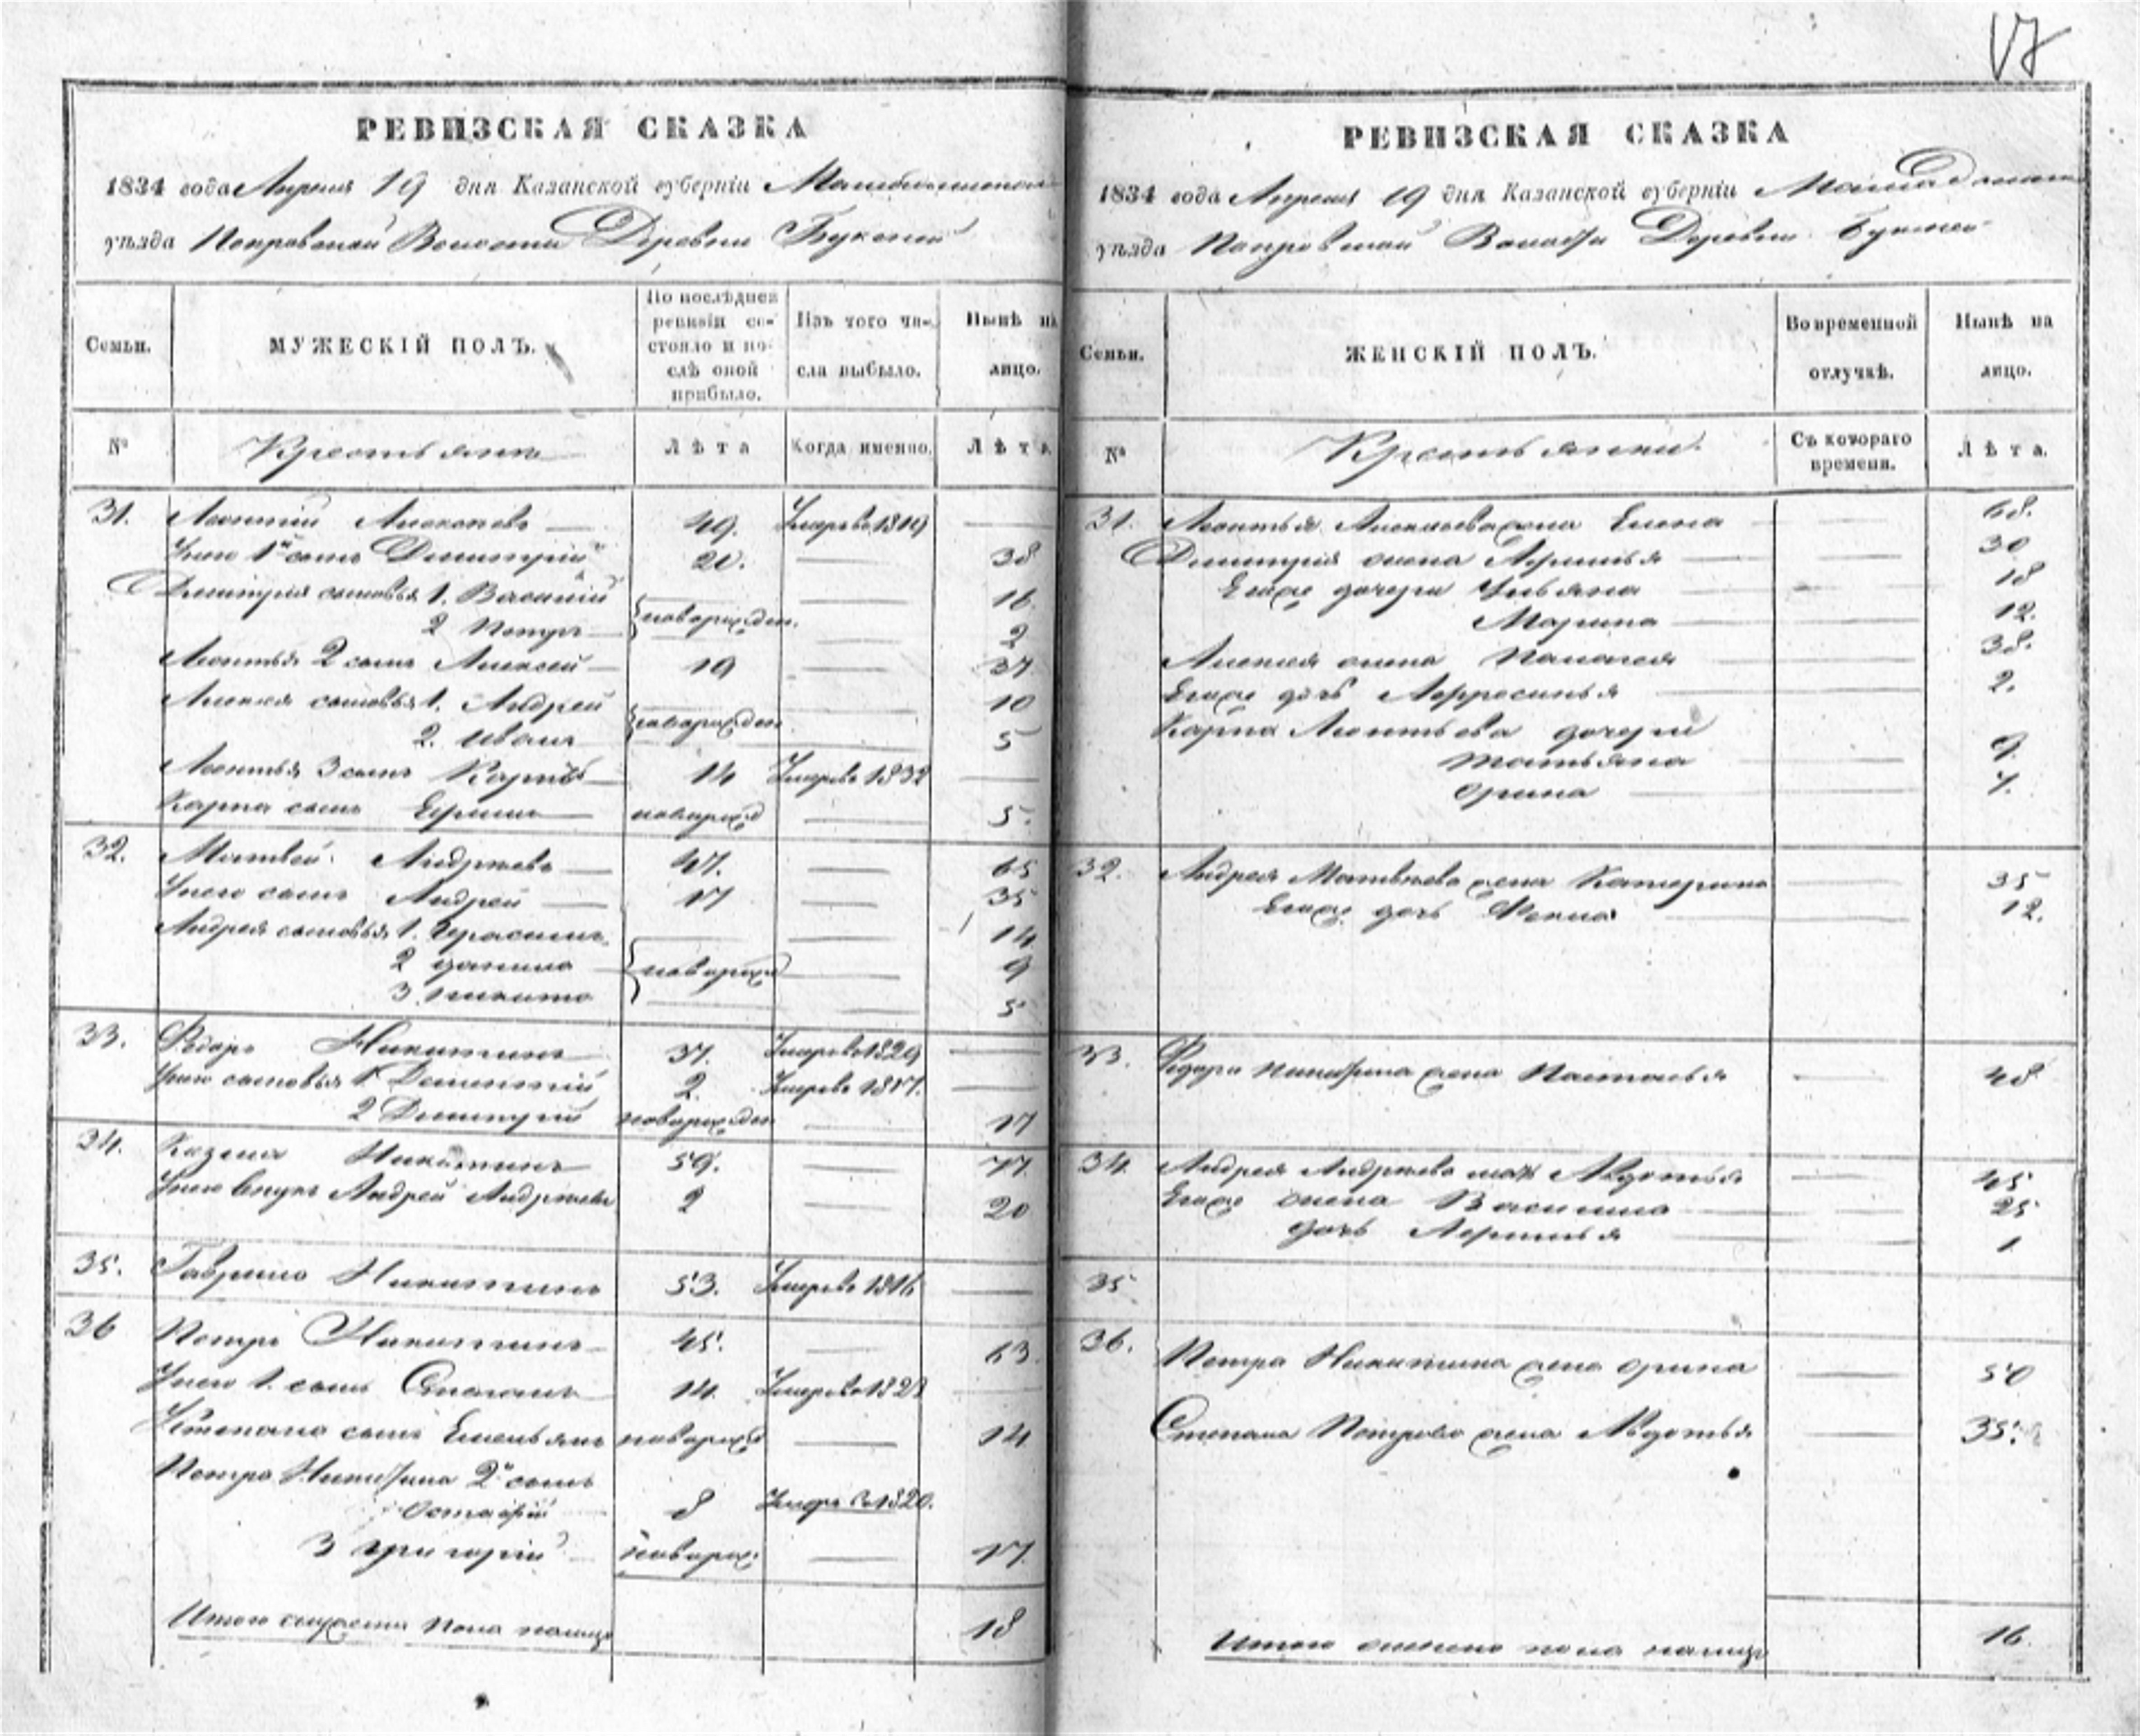 17
РЕВИЗСКАЯ СКАЗКА
1834 года Апреля 19 дня Казанской губерніи
уѣзда Покровской Волости Деревни
Семьи.
МУЖЕСКІЙ ПОЛЪ.
По послѣдней ревизіи состояло и послѣ оной прибыло.
Изъ того числа выбыло.
Нынѣ на лицо.
№
Крестьяне
Лѣта
Когда именно.
Лѣта
31. Леонтій Алексѣевъ 49. Умеръ въ 1819
У него 1й сынъ Димитрій 20. 38
Димитрія сыновья 1. Василій новорожден. 16
2 Петръ 2
Леонтья 2 сынъ Алексѣй 19 37
Алексѣя сыновья 1. Андрей новорожден 10
2. Иванъ 5
Леонтья 3 сынъ Карпъ 14 Умеръ въ 1832
Карпа сынъ новорожд 5.
32. Матвей Андреевъ 47. 65
У него сынъ Андрей 17 35
Андрея сыновья 1. Герасимъ 14
2 Данило новорожд 9
3. Никита 5
33. Федоръ Никитинъ 37. Умеръ въ 1829
У него сыновья 1 2. Умеръ въ 1817.
2 Димитрій новорожден 17
34. Козма Никитинъ 59. 77.
У него внукъ Андрей Андреевъ 2 20
35. Гаврило Никитинъ 53. Умеръ въ 1816
36 Петръ Никитинъ 45. 63.
У него 1. сынъ Степанъ 14. Умеръ въ 1828
Степана сынъ Емельянъ новорожд 14
Петра Никитина 2й сынъ
8 Умеръ въ 1820.
3 Григорій новорож: 17.
Итого мужеска пола налицо 18
РЕВИЗСКАЯ СКАЗКА
1834 года Апреля 19 дня Казанской губерніи
уѣзда Покровской Волости Деревни
Семьи.
ЖЕНСКІЙ ПОЛЪ.
Во временной отлучкѣ.
Нынѣ на лицо.
№
Крестьянки.
Съ котораго времени.
Лѣта.
31. Леонтья Алексѣева жена Елена 68.
Димитрія жена 30
Ево же дочери Ульяна 18
Марина 12.
Алексѣя жена Палагея 38.
Ево же дочь Афросинья 2.
Карпа Леонтьева дочери
Татьяна 9.
Орина 7.
32. Андрея Матвѣева жена Катерина 35
Ево же дочь 12.
33. Федора Никитина жена Настасья 48
34 Андрея Андреева мать Авдотья 45
Ево же жена Василиса 25
дочь 1
35
36. Петра Никитина жена Орина 50
Степана Петрова жена Авдотья 35.
Итого женска пола налицо 16.